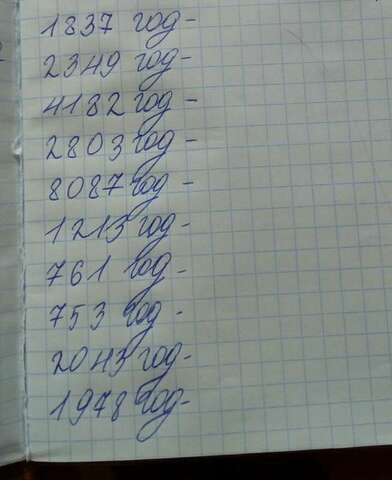 1837 год-
2349 год-
4182 год-
2803 год-
8087 год-
1213 год-
761 год-
753 год-
2043 год-
1978 год-